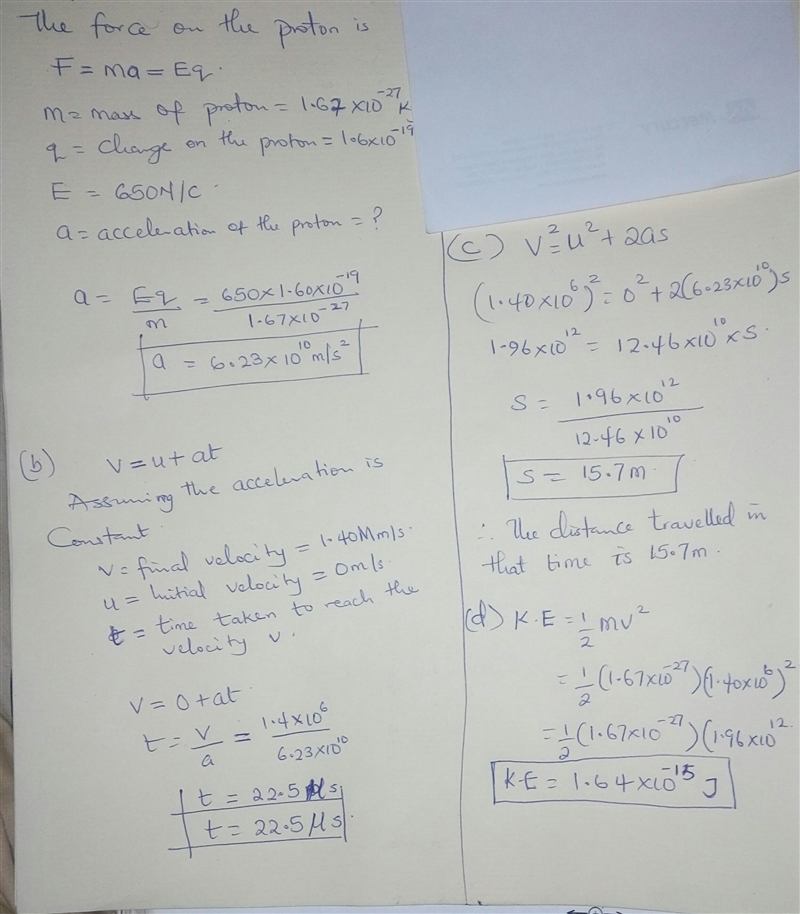 The force on the proton is
F = ma = Eq.
m = mass of proton = 1.67 × 10⁻²⁷ K
q = charge on the proton = 1.6×10⁻¹⁹
E = 650N/C.
a = acceleration of the proton = ?
a = Eq/m = 650×1.60×10⁻¹⁹/1.67×10⁻²⁷
a = 6.23×10¹⁰ m/s²
(b) V = u + at
Assuming the acceleration is
Constant.
V = final velocity = 1.40Mm/s.
u = Initial velocity = 0m/s.
t = time taken to reach the
velocity v.
V = 0 + at.
t = V/a = 1.4×10⁶/6.23×10¹⁰
t = 22.5 μs
t = 22.5 μs
(c) V² = u² + 2as
(1.40×10⁶)² = 0² + 2(6.23×10¹⁰)s
1.96×10¹² = 12.46×10¹⁰ × s.
S = 1.96×10¹²/12.46×10¹⁰
S = 15.7m.
∴ The distance travelled in
that time is 15.7m.
(d) K.E = ½ mv²
= ½ (1.67×10⁻²⁷)(1.40×10⁶)²
= ½ (1.67×10⁻²⁷)(1.96×10¹²
K.E = 1.64×10⁻¹⁵ J